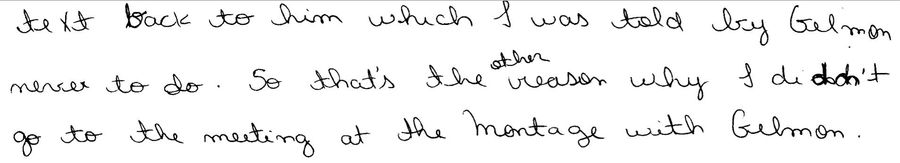 text back to him which I was told by Gelmon
never to do. So that's the other reason why I didn't
go to the meeting at the Montage with Gelmon.